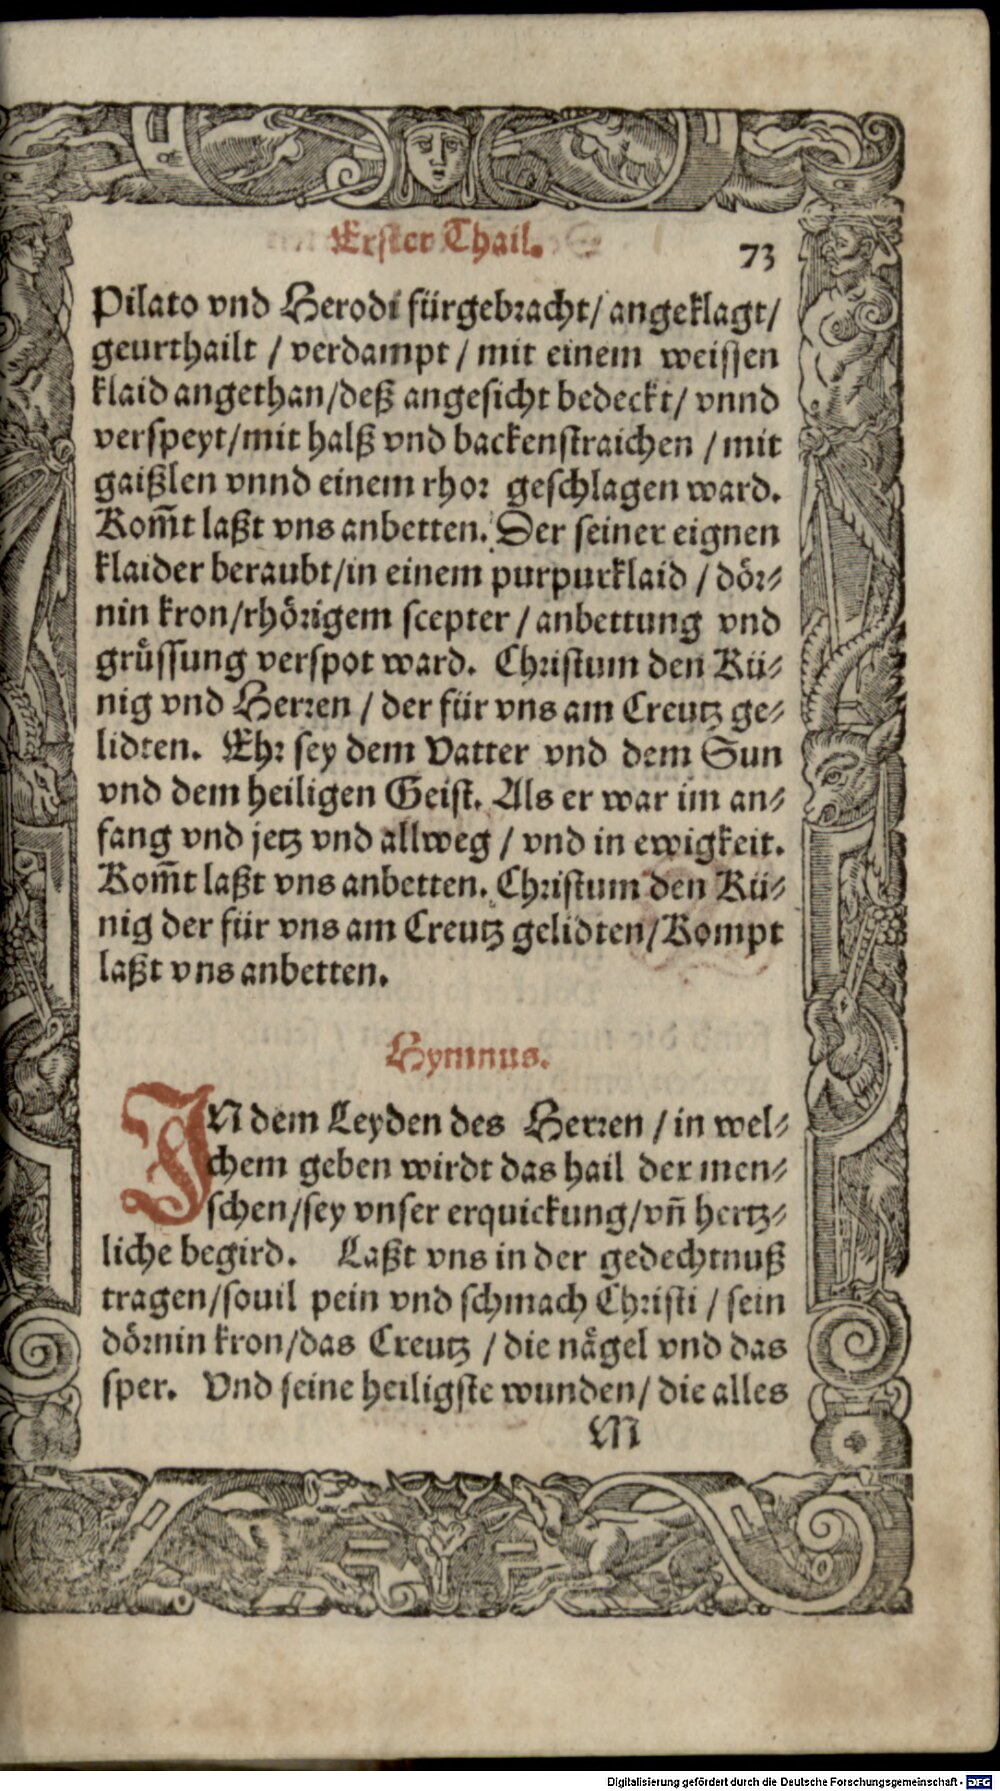 Erster Thail. 73
Pilato vnd Herodi fürgebracht/ angeklagt/
geurthailt / verdampt / mit einem weissen
klaid angethan/deß angesicht bedeckt/ vnnd
verspeyt/mit halß vnd backenstraichen / mit
gaißlen vnnd einem rhor geschlagen ward.
Kom̃t laßt vns anbetten. Der seiner eignen
klaider beraubt/in einem purpurklaid / dör⸗
nin kron/rhörigem scepter / anbettung vnd
grüssung verspot ward. Christum den Kü⸗
nig vnd Herren / der für vns am Creutz ge⸗
lidten. Ehr sey dem Vatter vnd dem Sun
vnd dem heiligen Geist. Als er war im an⸗
fang vnd jetz vnd allweg / vnd in ewigkeit.
Kom̃t laßt vns anbetten. Christum den Kü⸗
nig der für vns am Creutz gelidten/Kompt
laßt vns anbetten.
Hymnus.
IN dem Leyden des Herren / in wel⸗
chem geben wirdt das hail der men⸗
schen/sey vnser erquickung/vñ hertz⸗
liche begird. Laßt vns in der gedechtnuß
tragen/souil pein vnd schmach Christi / sein
dörnin kron/das Creutz / die nägel vnd das
sper. Vnd seine heiligste wunden/ die alles
M
Digitalisierung gefördert durch die Deutsche Forschungsgemeinschaft - DFG